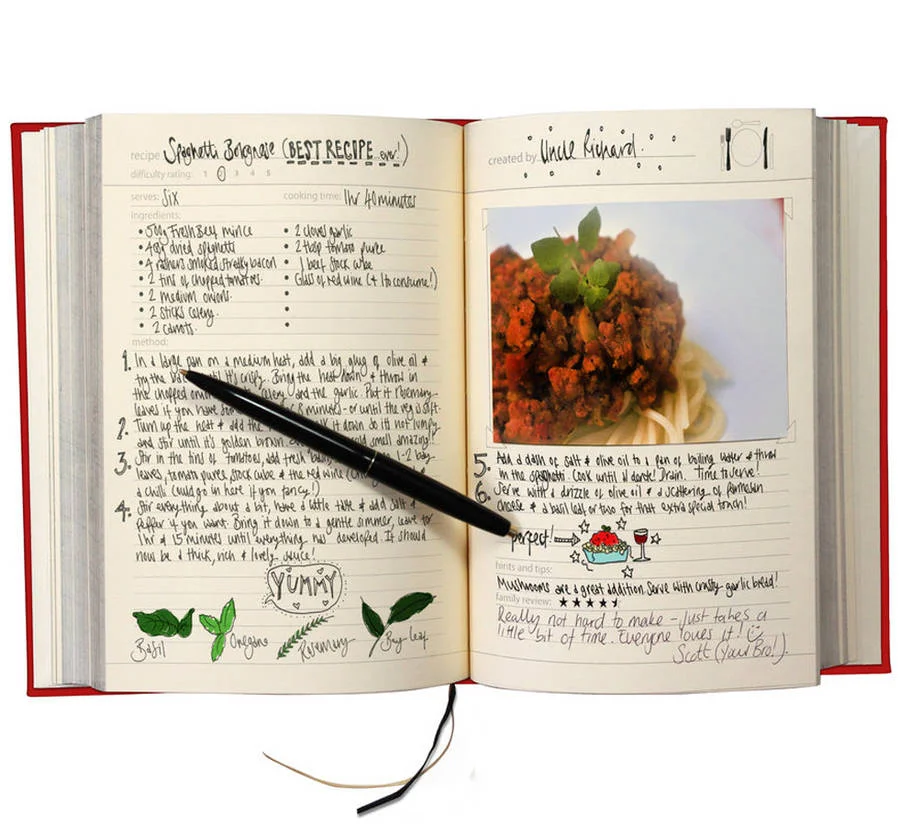 recipe Spaghetti Bolognase (BEST RECIPE ever!)
difficulty rating: 1 2 3 4 5
serves: Six cooking time: 1hr 40 minutes
ingredients:
• 500g Fresh Beef mince
• dried spaghetti
• 4 rashers smoked streaky bacon
• 2 tins of chopped tomatoes.
• 2 medium onions.
• 2 sticks celery.
• 2 carrots.
• 2 cloves garlic
• 2 tbsp tomato puree
• 1 beef stock cube
• Glass of red wine (+ 1 to consume!)
method:
1. In a large pan on a medium heat, add a big glug of olive oil &
fry the until it's crispy. Bring the heat down & throw in
the chopped celery and the garlic. Put it rosemary
leaves if you have 8 minutes - or until the veg is soft.
2. Turn up the heat & add the it down so it's not lumpy
and stir until it's golden brown. smell amazing!
3. Stir in the tins of tomatoes, add fresh 1-2 bay
leaves, tomato puree, stock cube & the red wine
a chilli could go in here if you fancy!)
4. Stir everything about a bit, have a little taste & add salt &
Pepper if you want. Bring it down to a gentle simmer, leave for
1hr & 15 minutes until everything has developed. It should
now be a thick, rich & lovely sauce!
YUMMY
Basil Oregano Rosemary Bay-leaf
created by Uncle Richard.
5. Add a dash of salt & olive oil to a pan of boiling water & throw
in the spaghetti. Cook until al dente! Drain. Time to serve!
6. Serve with a drizzle of olive oil & a scattering of parmesan
cheese & a basil leaf or two for that extra special touch!
perfect!
hints and tips:
Mushrooms are a great addition. Serve with crusty garlic bread!
family review:
Really not hard to make - just takes a
little bit of time. Everyone loves it!
Scott (Your Bro!).